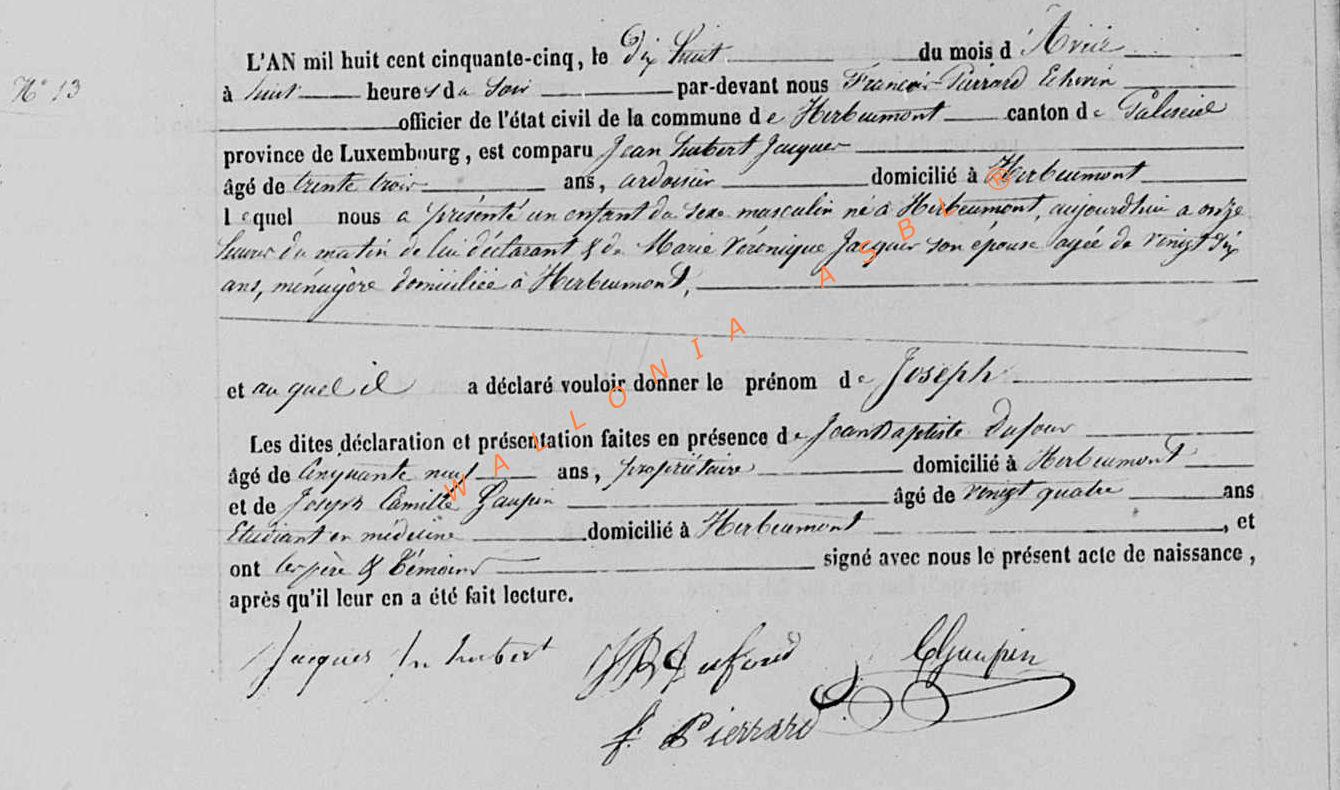 N° 13
L'AN mil huit cent cinquante-cinq, le Dix huit du mois d'Avril
à huit heures du Soir par-devant nous François Pierrard Echevin
officier de l'état civil de la commune de Herbeumont canton de Paliseul
province de Luxembourg, est comparu Jean hubert Jacques
âgé de trente trois ans, ardoisier domicilié à Herbeumont
lequel nous a présenté un enfant du sexe masculin né à Herbeumont, aujourd'hui a onze
heures du matin de lui déclarant & de Marie Véronique Jacques son épouse agée de vingt dix
ans, ménagère domiciliée à Herbeumont,
et auquel il a déclaré vouloir donner le prénom de Joseph
Les dites déclaration et présentation faites en présence de Jean Baptiste Dufour
âgé de Cinquante neuf ans, propriétaire domicilié à Herbeumont
et de Joseph Camille Gaupin âgé de vingt quatre ans
Etudiant en médecine domicilié à Herbeumont, et
ont les père & témoins signé avec nous le présent acte de naissance,
après qu'il leur en a été fait lecture.
Jacques Jn hubert JB Dufour CGaupin
f. Pierrard
WALLONIA ASBL ®